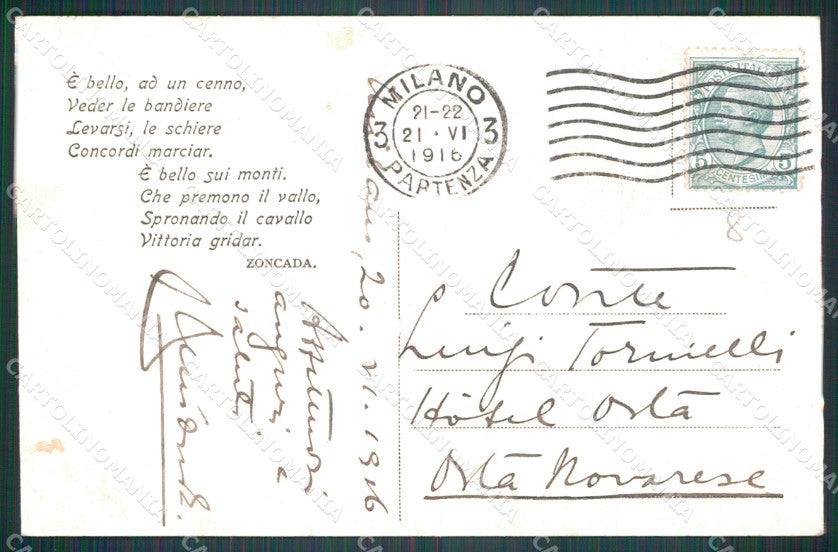 È bello, ad un cenno,
Veder le bandiere
Levarsi, le schiere
Concordi marciar.
È bello sui monti.
Che premono il vallo,
Spronando il cavallo
Vittoria gridar.
ZONCADA.
MILANO
3 21-22 3
21 · VI
1916
PARTENZA
POSTE ITALIANE
5 CENTESIMI 5
8
20. VI. 1916
Affettuosi
auguri e
saluti
Conte
Luigi Tornielli
Hôtel Orta
Orta Novarese
CARTOLINOMANIA